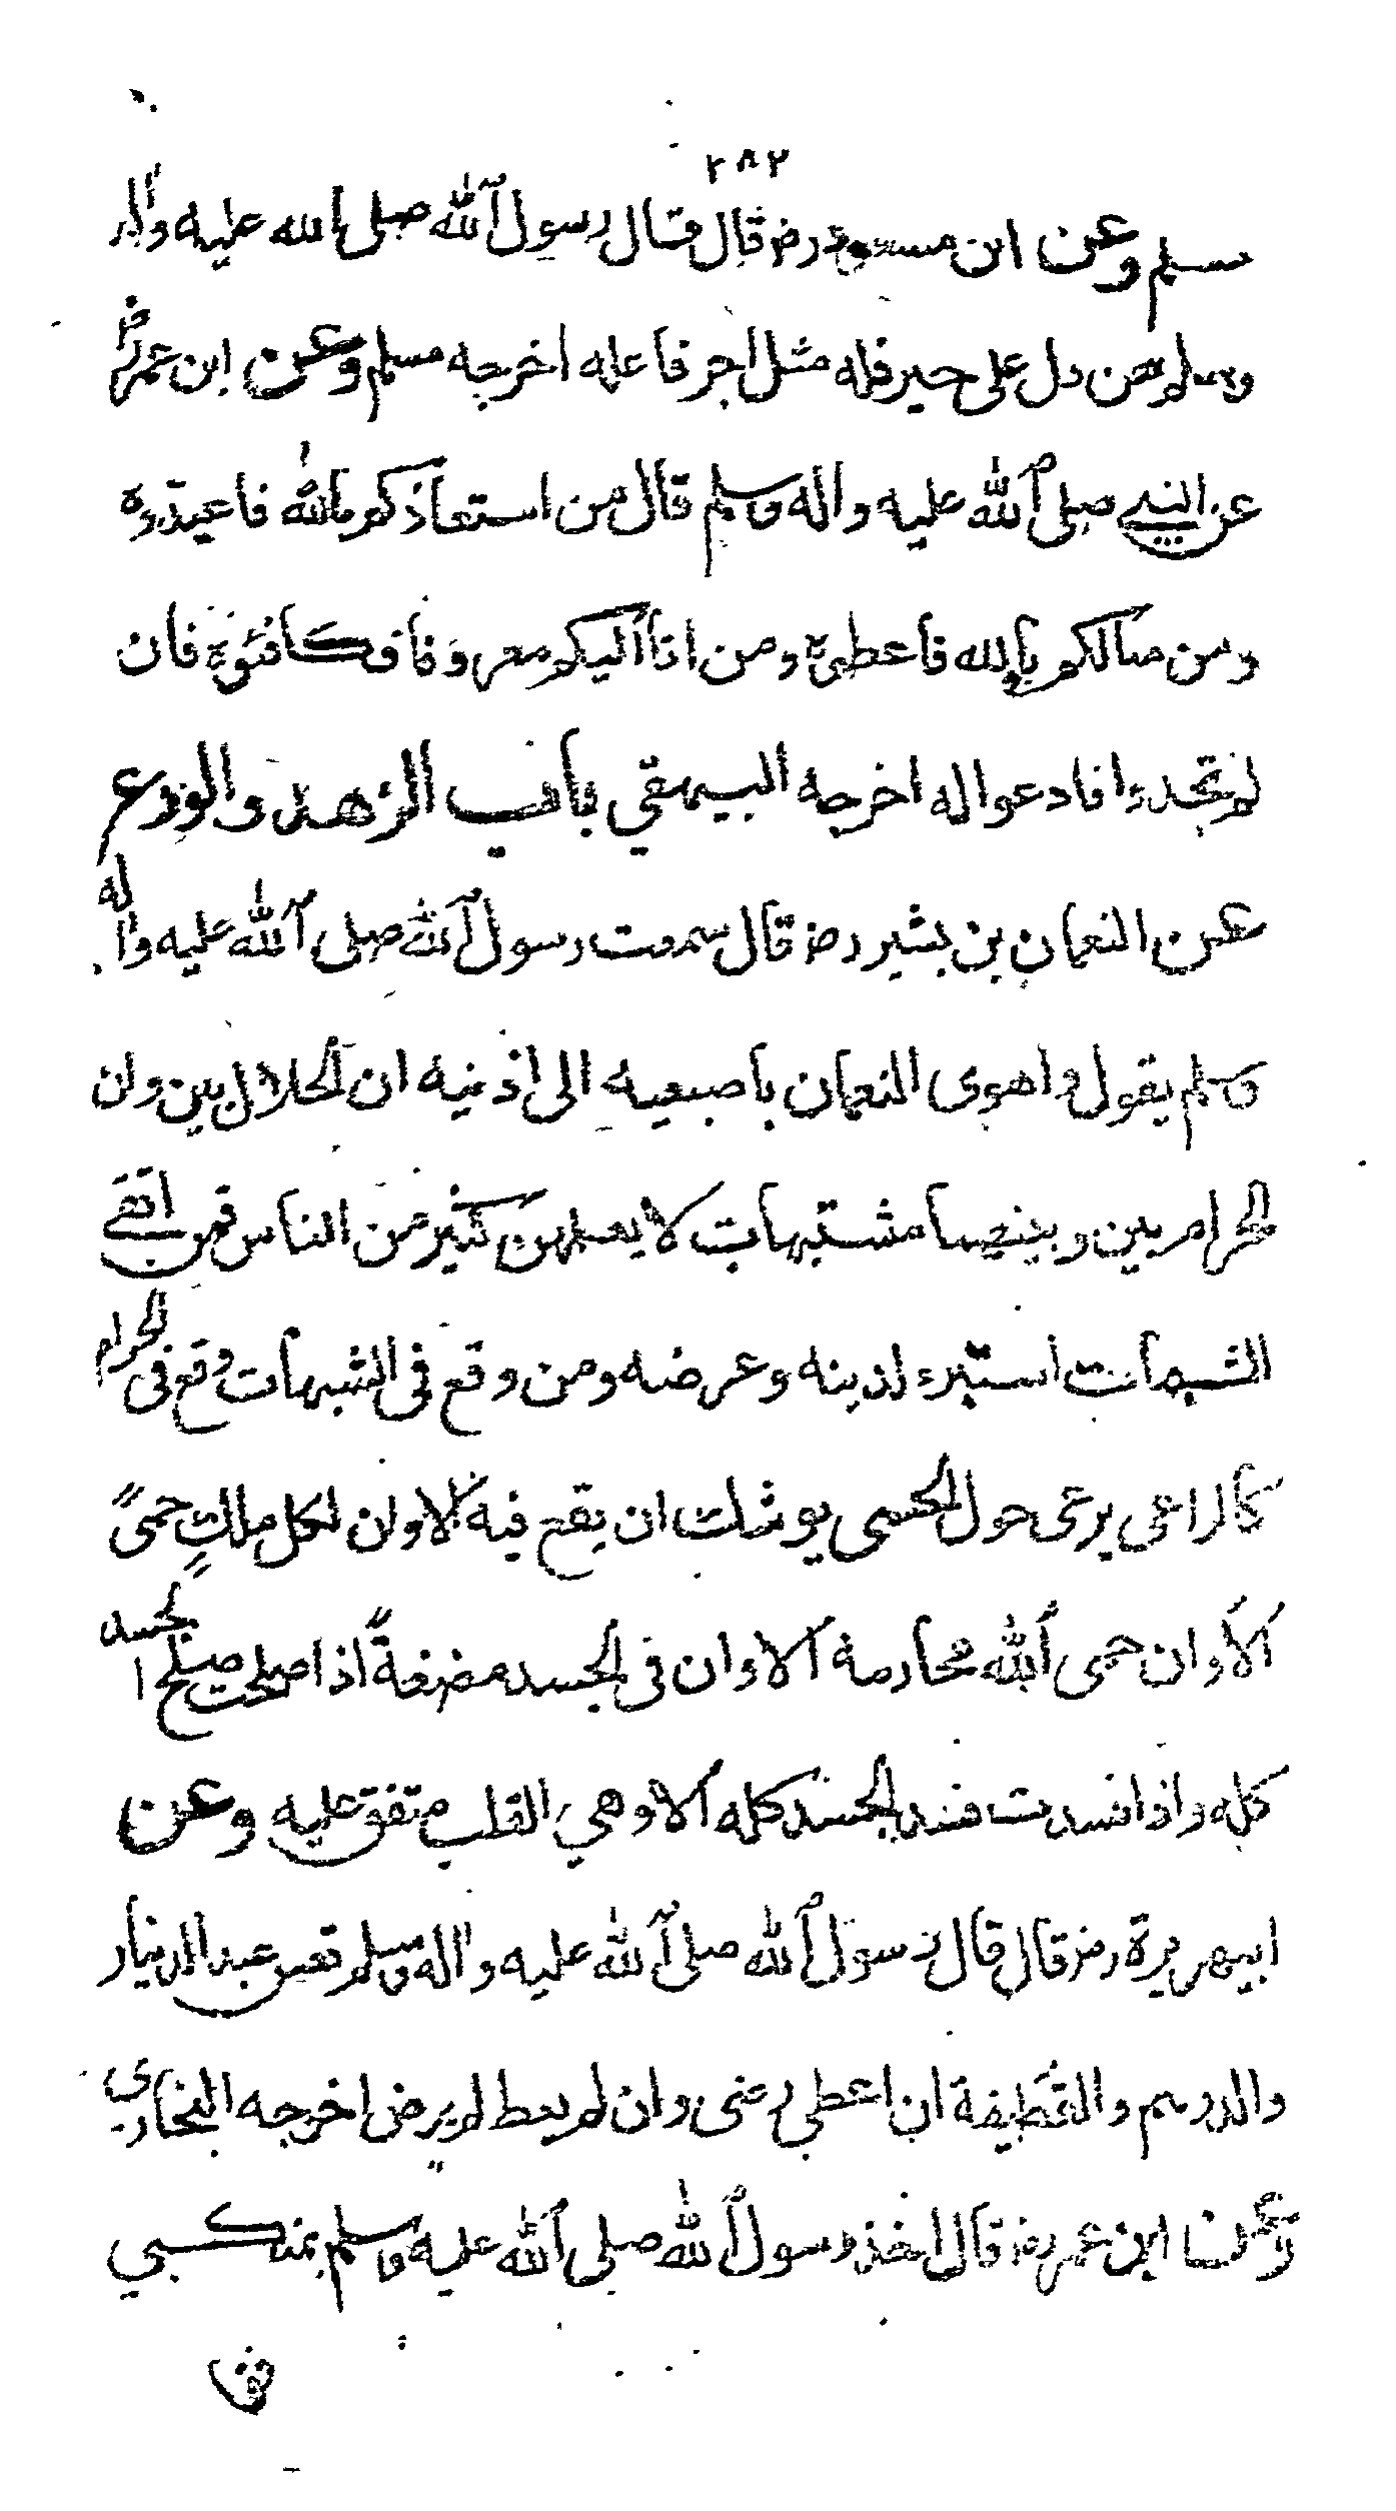 ٢٨٢
مسلم وعن ابن مسعود رض قال قال رسول الله صلى الله عليه واله
وسلم من دل على خير فله مثل اجر فاعله اخرجه مسلم وعن ابن عمر رض
عن النبي صلى الله عليه واله وسلم قال من استعاذكم بالله فاعيذوه
ومن سالكم بالله فاعطوه ومن اتا اليكم معروفا فكافئوه فان
لم تجدوا فادعوا له اخرجه البيهقي باب الزهد والورع
عن النعمان بن بشير رض قال سمعت رسول الله صلى الله عليه واله
وسلم يقول واهوى النعمان باصبعيه الى اذنيه ان الحلال بين وان
الحرام بين وبينهما مشتبهات لا يعلمهن كثير من الناس فمن اتقى
الشبهات استبرء لدينه وعرضه ومن وقع في الشبهات وقع في الحرام
كالراعي يرعى حول الحمى يوشك ان يقع فيه الا وان لكل ملكٍ حمىً
الا وان حمى الله محارمه الا وان في الجسد مضغةً اذا صلحت صلح الجسد
كله واذا فسدت فسد الجسد كله الا وهي القلب متفق عليه وعن
ابيهريرة رض قال قال رسول الله صلى الله عليه واله وسلم تعس عبد الدينار
والدرهم والقطيفة ان اعطي رضى وان لم يعط لم يرض اخرجه البخاري
وعن ابن عمر رض قال اخذ رسول الله صلى الله عليه وسلم بمنكبي
فقا